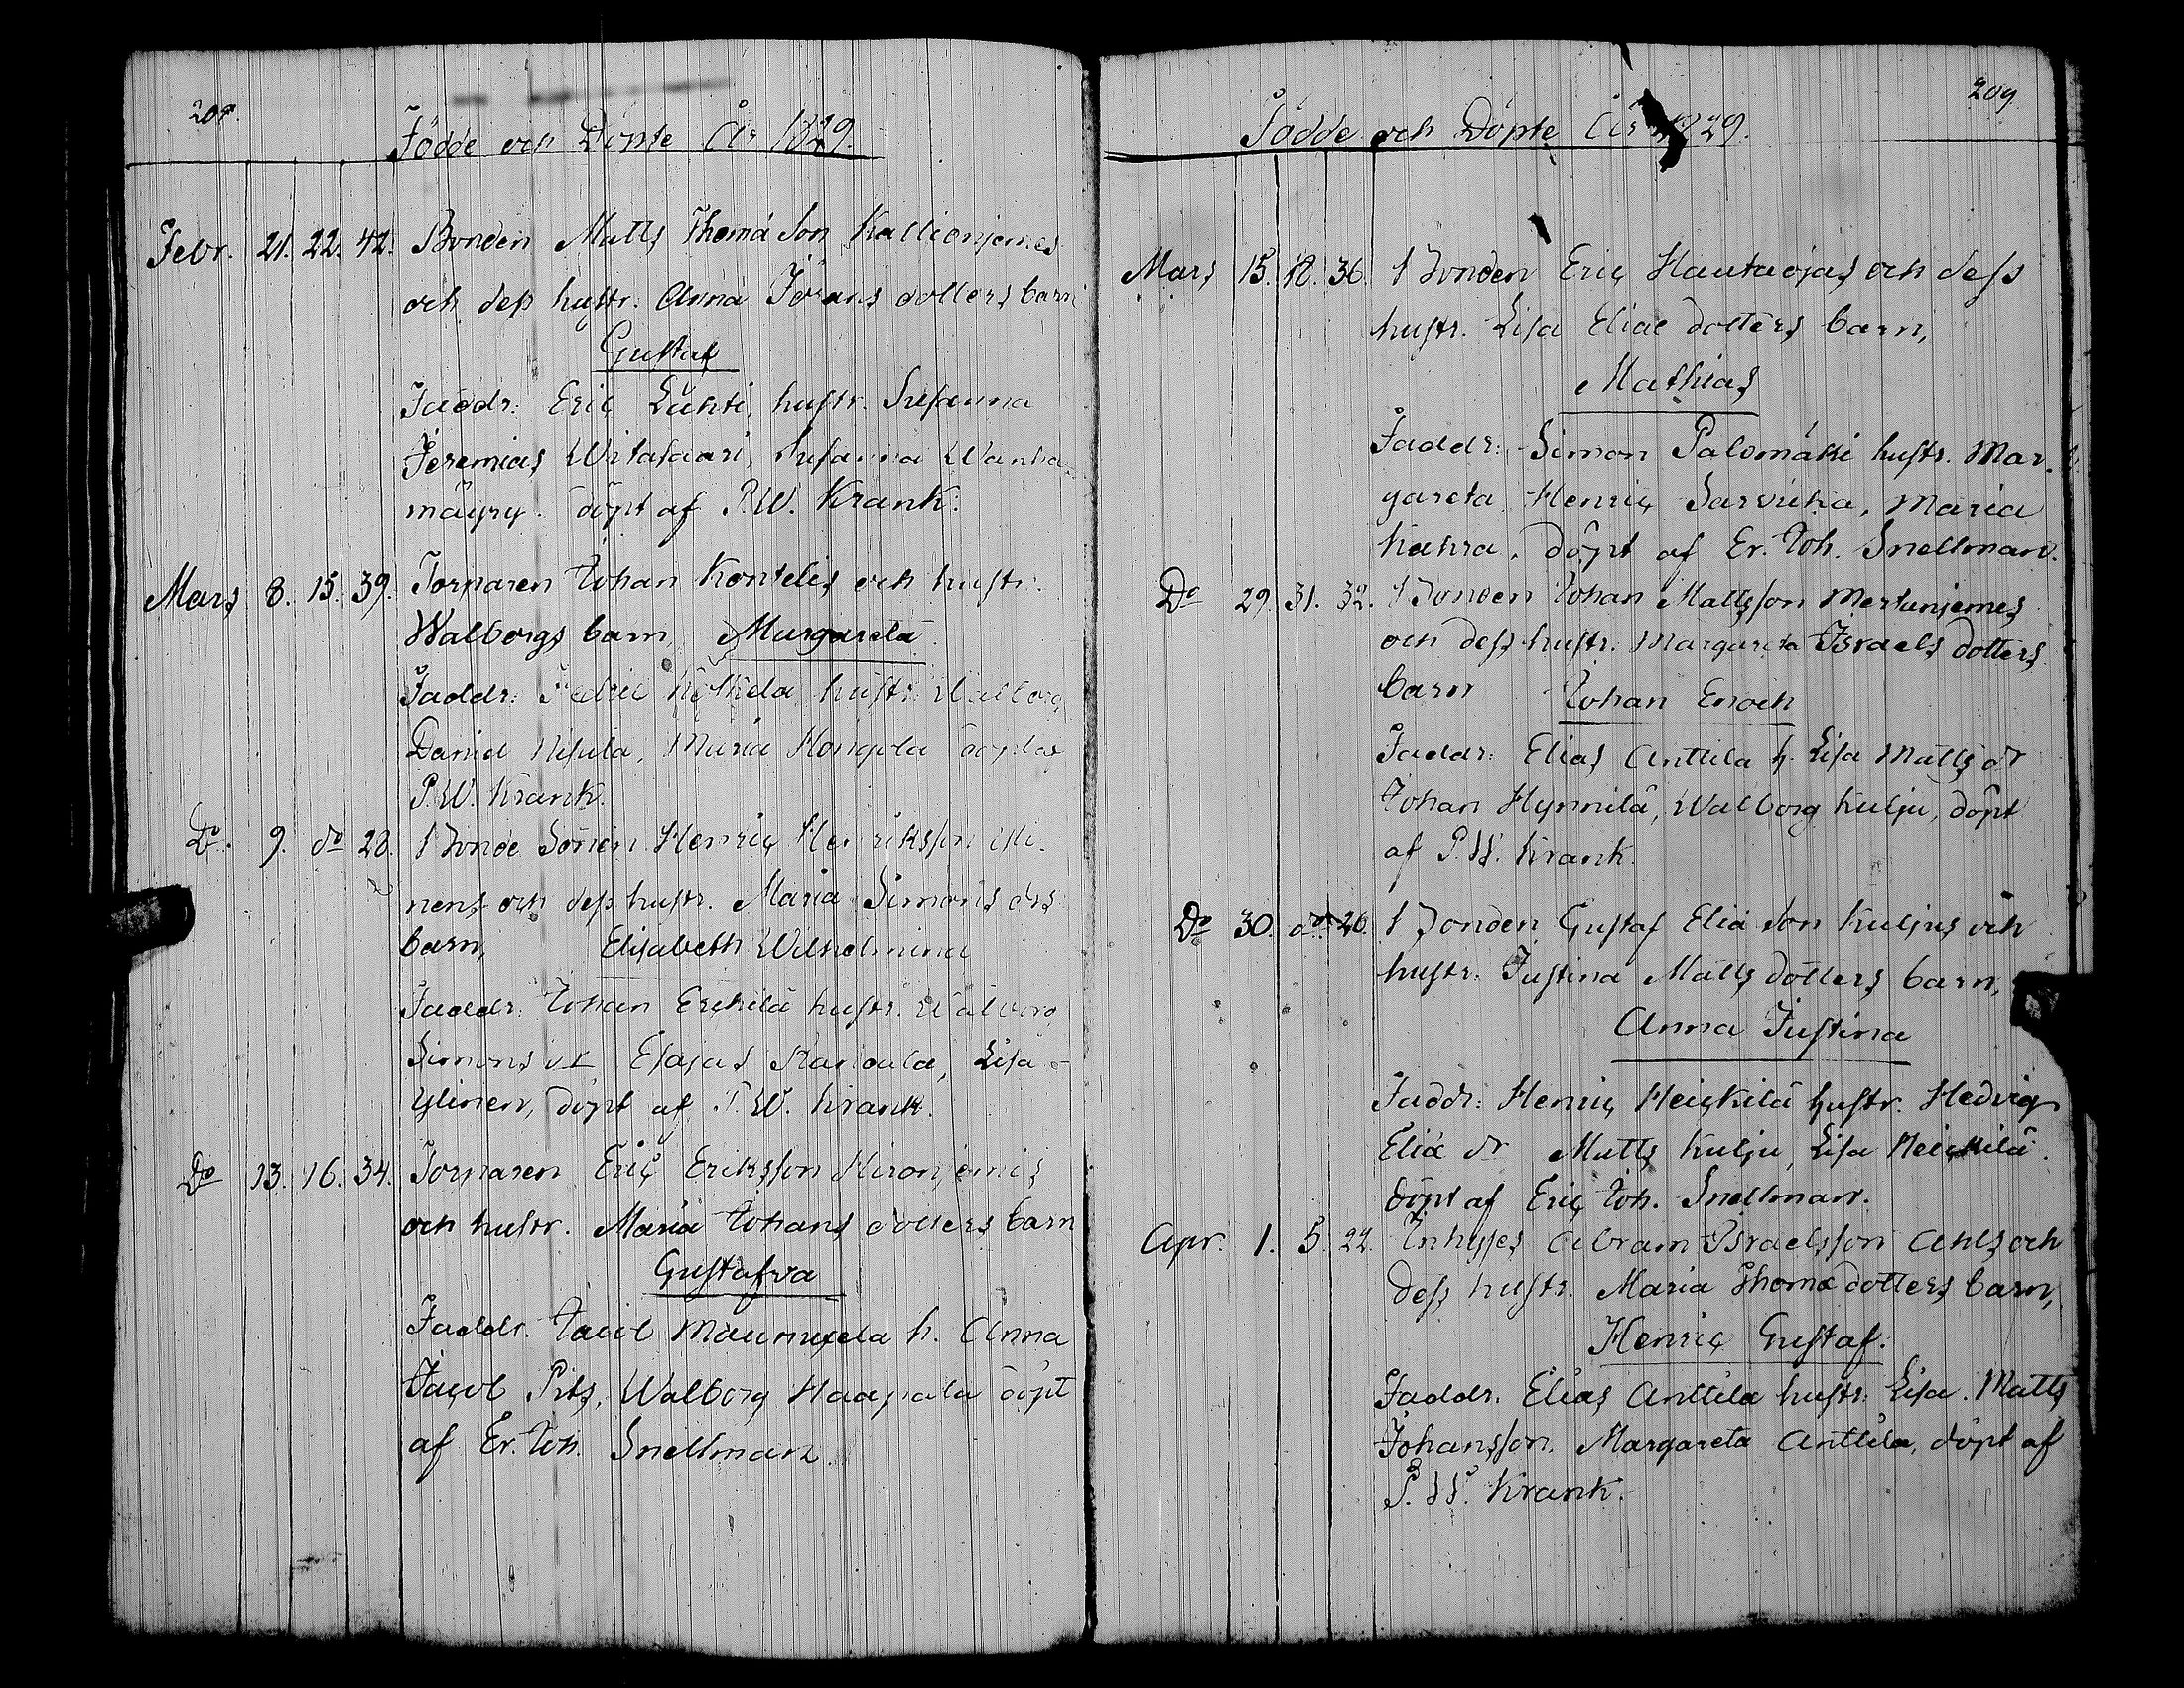 208.
Födde och Döpte År 1829.
Febr. 21. 22. 42. Bonden Matts Thomæ Son Kallionjemes
och dess hustr. Anna Jörans dotters barn
Gustaf
Faddr: Eric Luhti, hustr. Susanna
Jeremias Witasaari, Susanna Wanha
mäyry. döpt af P.W. Krank.
Mars 8. 15. 39. Torparen Johan Kontelis och hustr.
Walborgs barn, Margareta
Faddr: hustr. Walborg
Daniel Maria Hongola döpt af
P.W. Krank.
Do. 9. do 28. Bonde Sonen Henric Henriksson Yli-
nens och dess hustr. Maria Simons drs
barn, Elisabeth Wilhelmina
Faddr: Johan Erckilä hustr. Walborg
Simons dr Esajas Lisa
Ylinen, döpt af P.W. Krank.
Do 13. 16. 34. Torparen Eric Eriksson Hironjemis
och hustr. Maria Johans dotters barn
Gustafva
Faddr. Jacob Maunuxela h. Anna
Jacob Pits, Walborg Haapala döpt
af Er. Joh. Snellman.
209
Födde och Döpte År 1829.
Mars 15. 18. 36. Bonden Eric Hautaojas och dess
hustr. Lisa Eliæ dotters barn,
Mathias
Faddr: Simon Palomäki hustr. Mar-
gareta, Henric Sarvicka, Maria
Kahra. döpt af Er. Joh. Snellman.
Do 29. 31. 32. Bonden Johan Mattsson Mertunjemes
och dess hustr. Margareta Israels dotters
barn Johan Enoch
Faddr: Elias Anttila h. Lisa Matts dr
Johan Hynnilä, Walborg Kulju, döpt
af P.W. Krank.
Do 30. do. 26. Bonden Gustaf Eliæ Son Kuljus och
hustr. Justina Matts dotters barn,
Anna Justina
Faddr: Henric Heickilä hustr. Hedvig
Eliæ dr Matts Kulju, Lisa Heickilä.
döpt af Eric Joh. Snellman.
Apr. 1. 5. 22. Inhyses Abram Israelsson Ahls och
dess hustr. Maria Thomæ dotters barn,
Henric Gustaf.
Faddr: Elias Anttila hustr. Lisa. Matts
Johansson. Margareta Anttila, döpt af
P.W. Krank.